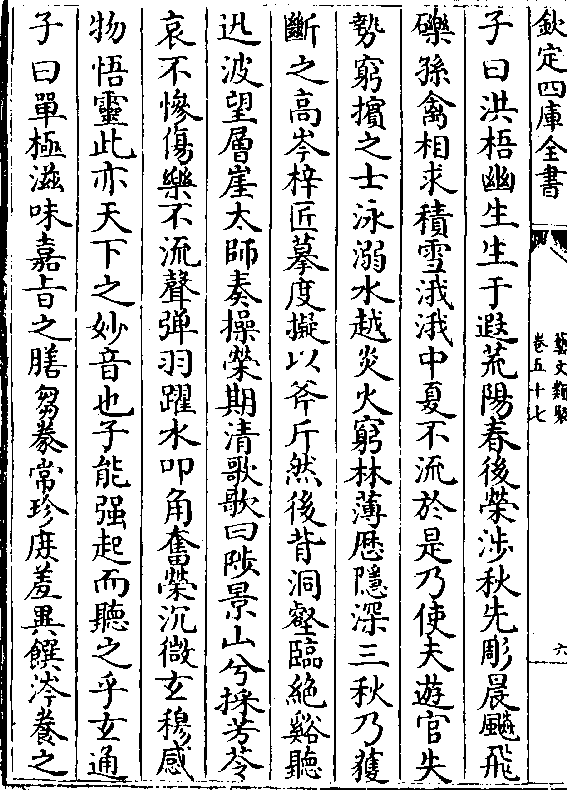 欽定四庫全書
藝文類聚
卷五十七
六
子曰洪梧幽生生于遐荒陽春後榮涉秋先彫晨飈飛
礫孫禽相求積雪涐涐中夏不流於是乃使夫遊官失
勢窮擯之士泳溺水越炎火窮林薄歴隱深三秋乃獲
斷之高岑梓匠摹度擬以斧斤然後背洞壑臨絶谿聽
迅波望層崖太師奏操榮期清歌歌曰陟景山兮採芳苓
哀不慘傷樂不流聲弹羽躍水叩角奮榮沉微玄穆感
物悟靈此亦天下之妙音也子能强起而聽之乎玄通
子曰單極滋味嘉旨之膳芻豢常珍庶羞異饌涔養之